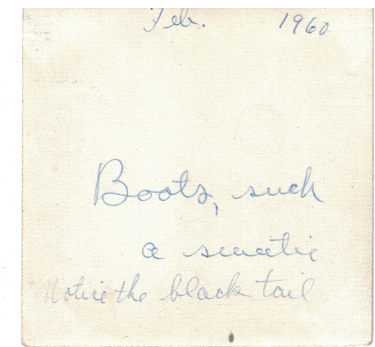 Feb. 1960
Boots, such
a sweetie
Notice the black tail